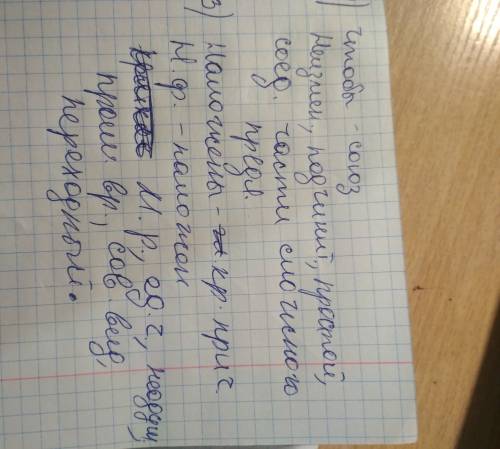 ) Чтобы - союз
Неизмен, подчинит, простой,
соед. части сложного
предл.
3) Наложены - кр. прич.
Н.ф. - наложен
М.р., ед.ч, неодуш,
прош. вр., сов. вид,
переходный.